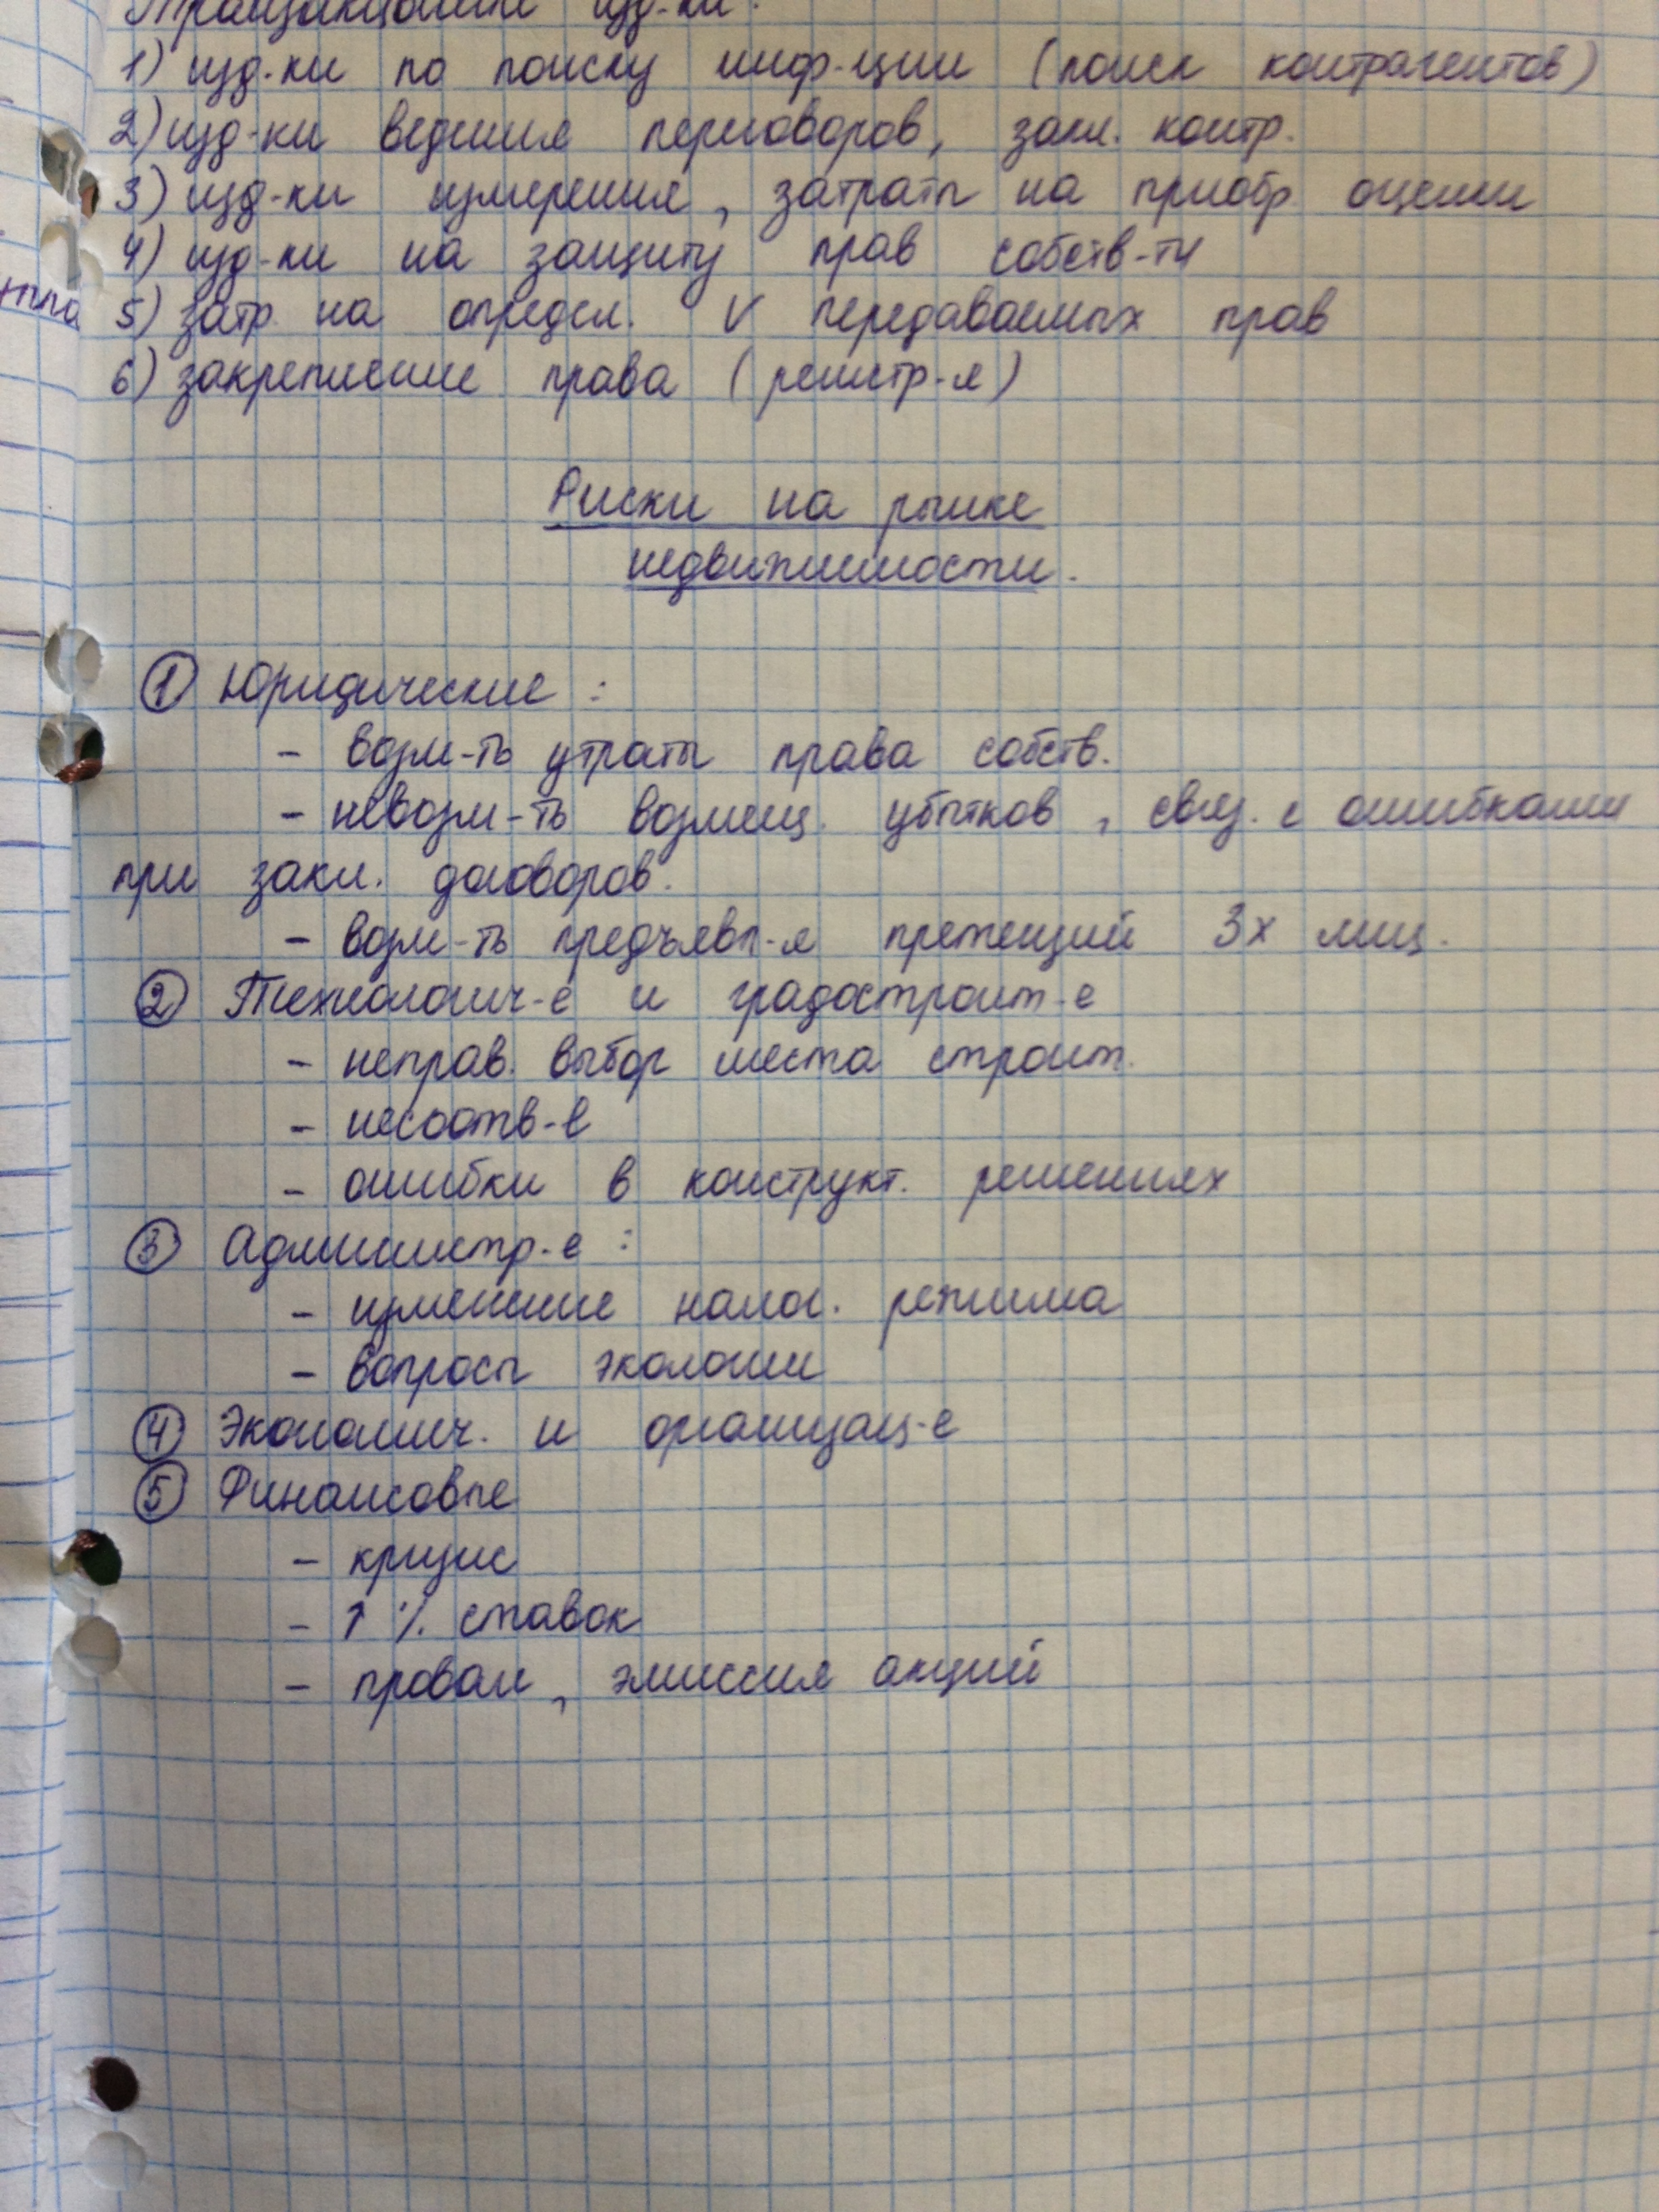 Транзакционные изд-ки:
1) изд-ки по поиску инф-ции (поиск контрагентов)
2) изд-ки ведения переговоров, закл. контр.
3) изд-ки измерения, затраты на приобр. оценки
4) изд-ки на защиту прав собств-ти
5) затр. на определ. V передаваемых прав
6) закрепление права (регистр-я)
Риски на рынке
недвижимости.
① Юридические :
- возм-ть утраты права собств.
- невозм-ть возмещ. убытков, связ. с ошибками
при закл. договоров.
- возм-ть предъявл-я претензий 3х лиц.
② Технологич-е и градостроит-е
- неправ. выбор места строит.
- несоотв-е
- ошибки в конструкт. решениях
③ Администр-е :
- изменение налог. режима
- вопросы экологии
④ Экономич. и организац-е
⑤ Финансовые
- кризис
- ↑ % ставок
- провал, эмиссия акций